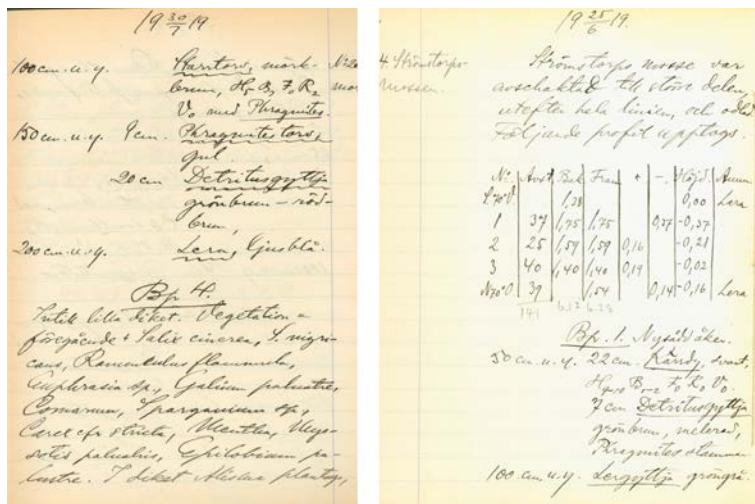 19 30/7 19
100 cm. u. y. Starrtorv, mörk-
brun, H5 B3 F0 R2
V0 med Phragmites.
150 cm. u. y. 9 cm. Phragmitestorv,
gul.
20 cm Detritusgyttja
grönbrun - röd-
brun,
200 cm. u. y. Lera, ljusblå.
Bp 4.
Intill lilla diket. Vegetation =
föregående + Salix cinerea, S. nigri-
cans, Ranunculus flammula,
Euphrasia sp., Galium palustre,
Comarum, Sparganium sp.,
Carex cfr stricta, Mentha, Myo-
sotis palustris, Epilobium pa-
lustre. I diket Alisma plantago,
19 25/6 19.
4. Strömstorps-
mossen.
Strömstorps mosse var
avschaktad till större delen,
utefter hela linien, och odlad.
Följande profil upptogs.
No. Avst. Bak Fram + -. Höjd. Anm.
S70°V. 1,38 0,00 Lera
1 37 1,75 1,75 0,37 -0,37
2 25 1,59 1,59 0,16 -0,21
3 40 1,40 1,40 0,19 -0,02
N70°O 39 1,54 0,14 -0,16 Lera
141 6.12 6.28
Bp. 1. Nysådd åker.
50 cm. u. y. 22 cm. Kärrdy, svart,
F0 R0 V0.
7 cm Detritusgyttja
grönbrun, melerad,
Phragmites stammar
100 cm. u. y. Lergyttja gröngrå